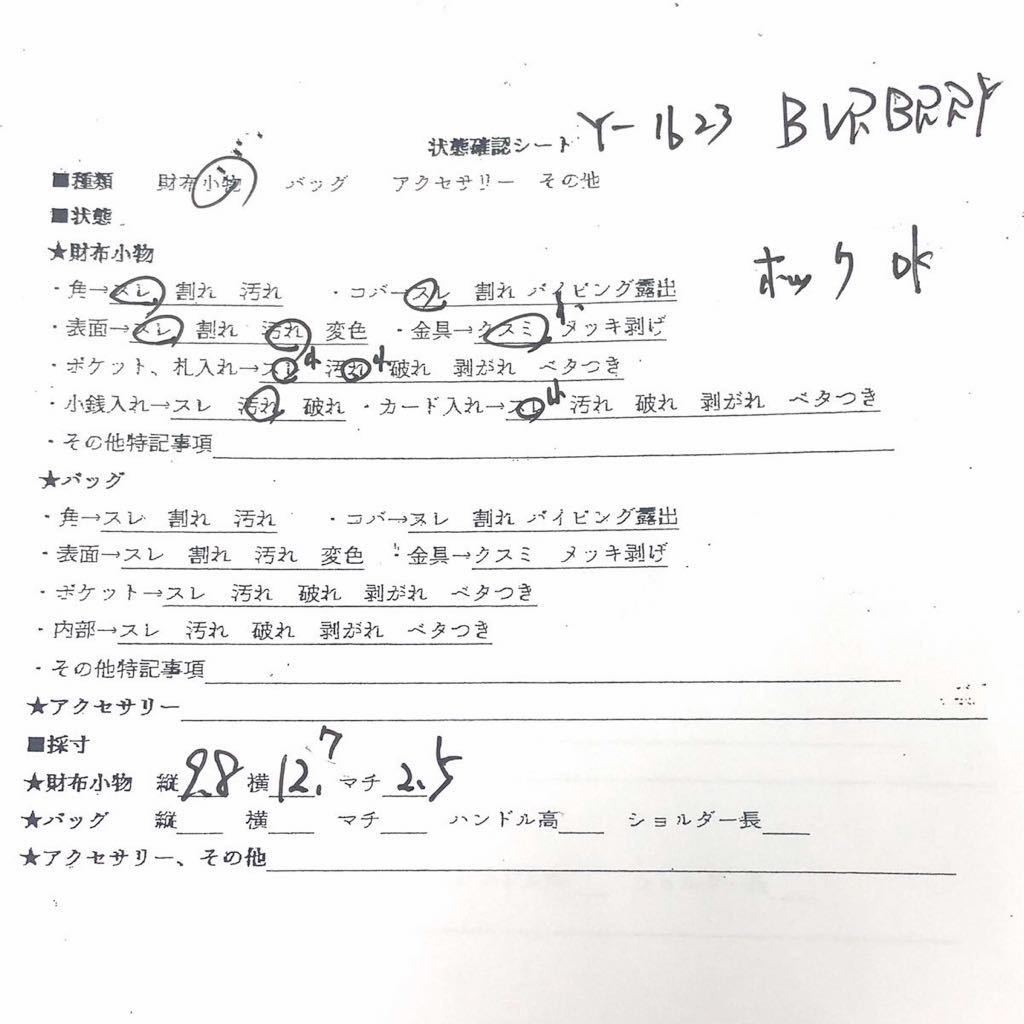 状態確認シート Y-1623 BURBRRY
■種類 財布小物 バッグ アクセサリー その他
■状態
★財布小物
ホック OK
・角→スレ 割れ 汚れ ・コバ→スレ 割れ パイピング露出
・表面→スレ 割れ 汚れ 変色 ・金具→クスミ 小 メッキ剥げ
・ポケット、札入れ→スレ 小 汚れ 小 破れ 剥がれ ベタつき
・小銭入れ→スレ 汚れ 破れ ・カード入れ→スレ 小 汚れ 破れ 剥がれ ベタつき
・その他特記事項
★バッグ
・角→スレ 割れ 汚れ ・コバ→スレ 割れ パイピング露出
・表面→スレ 割れ 汚れ 変色 ・金具→クスミ メッキ剥げ
・ポケット→スレ 汚れ 破れ 剥がれ ベタつき
・内部→スレ 汚れ 破れ 剥がれ ベタつき
・その他特記事項
★アクセサリー
■採寸
★財布小物 縦 9.8 横 12.7 マチ 2.5
★バッグ 縦 横 マチ ハンドル高 ショルダー長
★アクセサリー、その他